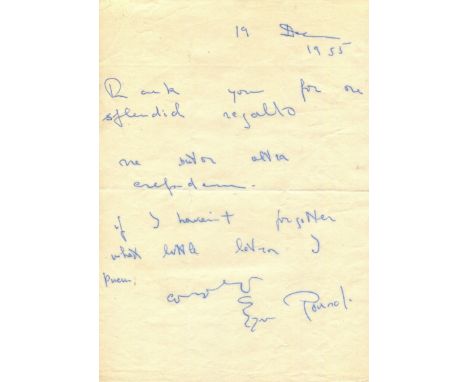 19 Dec
1955
Thank you for the
splendid regallo
ne sutor ultra
crepidam.
if I haven't forgotten
what little latin I
knew.
Ezra Pound.